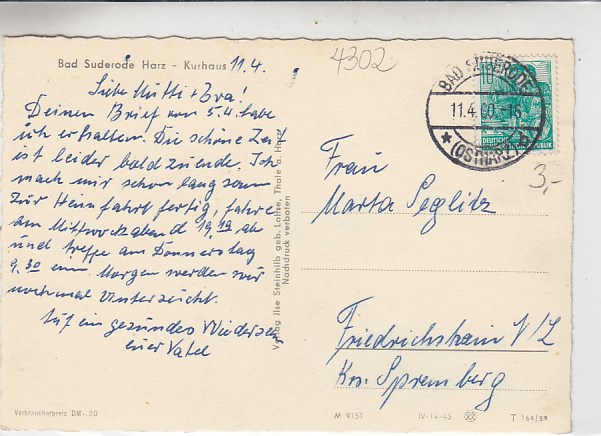 Bad Suderode Harz - Kurhaus 11.4.
4302
Liebe Mutti + Bra!
Deinen Brief vom 5.4. habe
ich erhalten. Die schöne Zeit
ist leider bald zuende. Ich
mach mir schon langsam
zur Heimfahrt fertig, fahre
am Mittwochabend 19,19 ab
und treffe am Donnerstag
9.30 ein Morgen werden wir
nochmal untersucht.
Auf ein gesundes Wiedersehn
euer Vater
Verbraucherpreis DM -.20
Verlag Ilse Steinhilb geb. Lohse, Thale a. Harz
Nachdruck verboten
BAD SUDERODE
11.4.60-16
(OSTHARZ)
10
DEUTSCHE
3,-
Frau
Marta Seglitz
Friedrichshain N/L
Krs. Spremberg
M 9151
IV-14-45
T 164/59